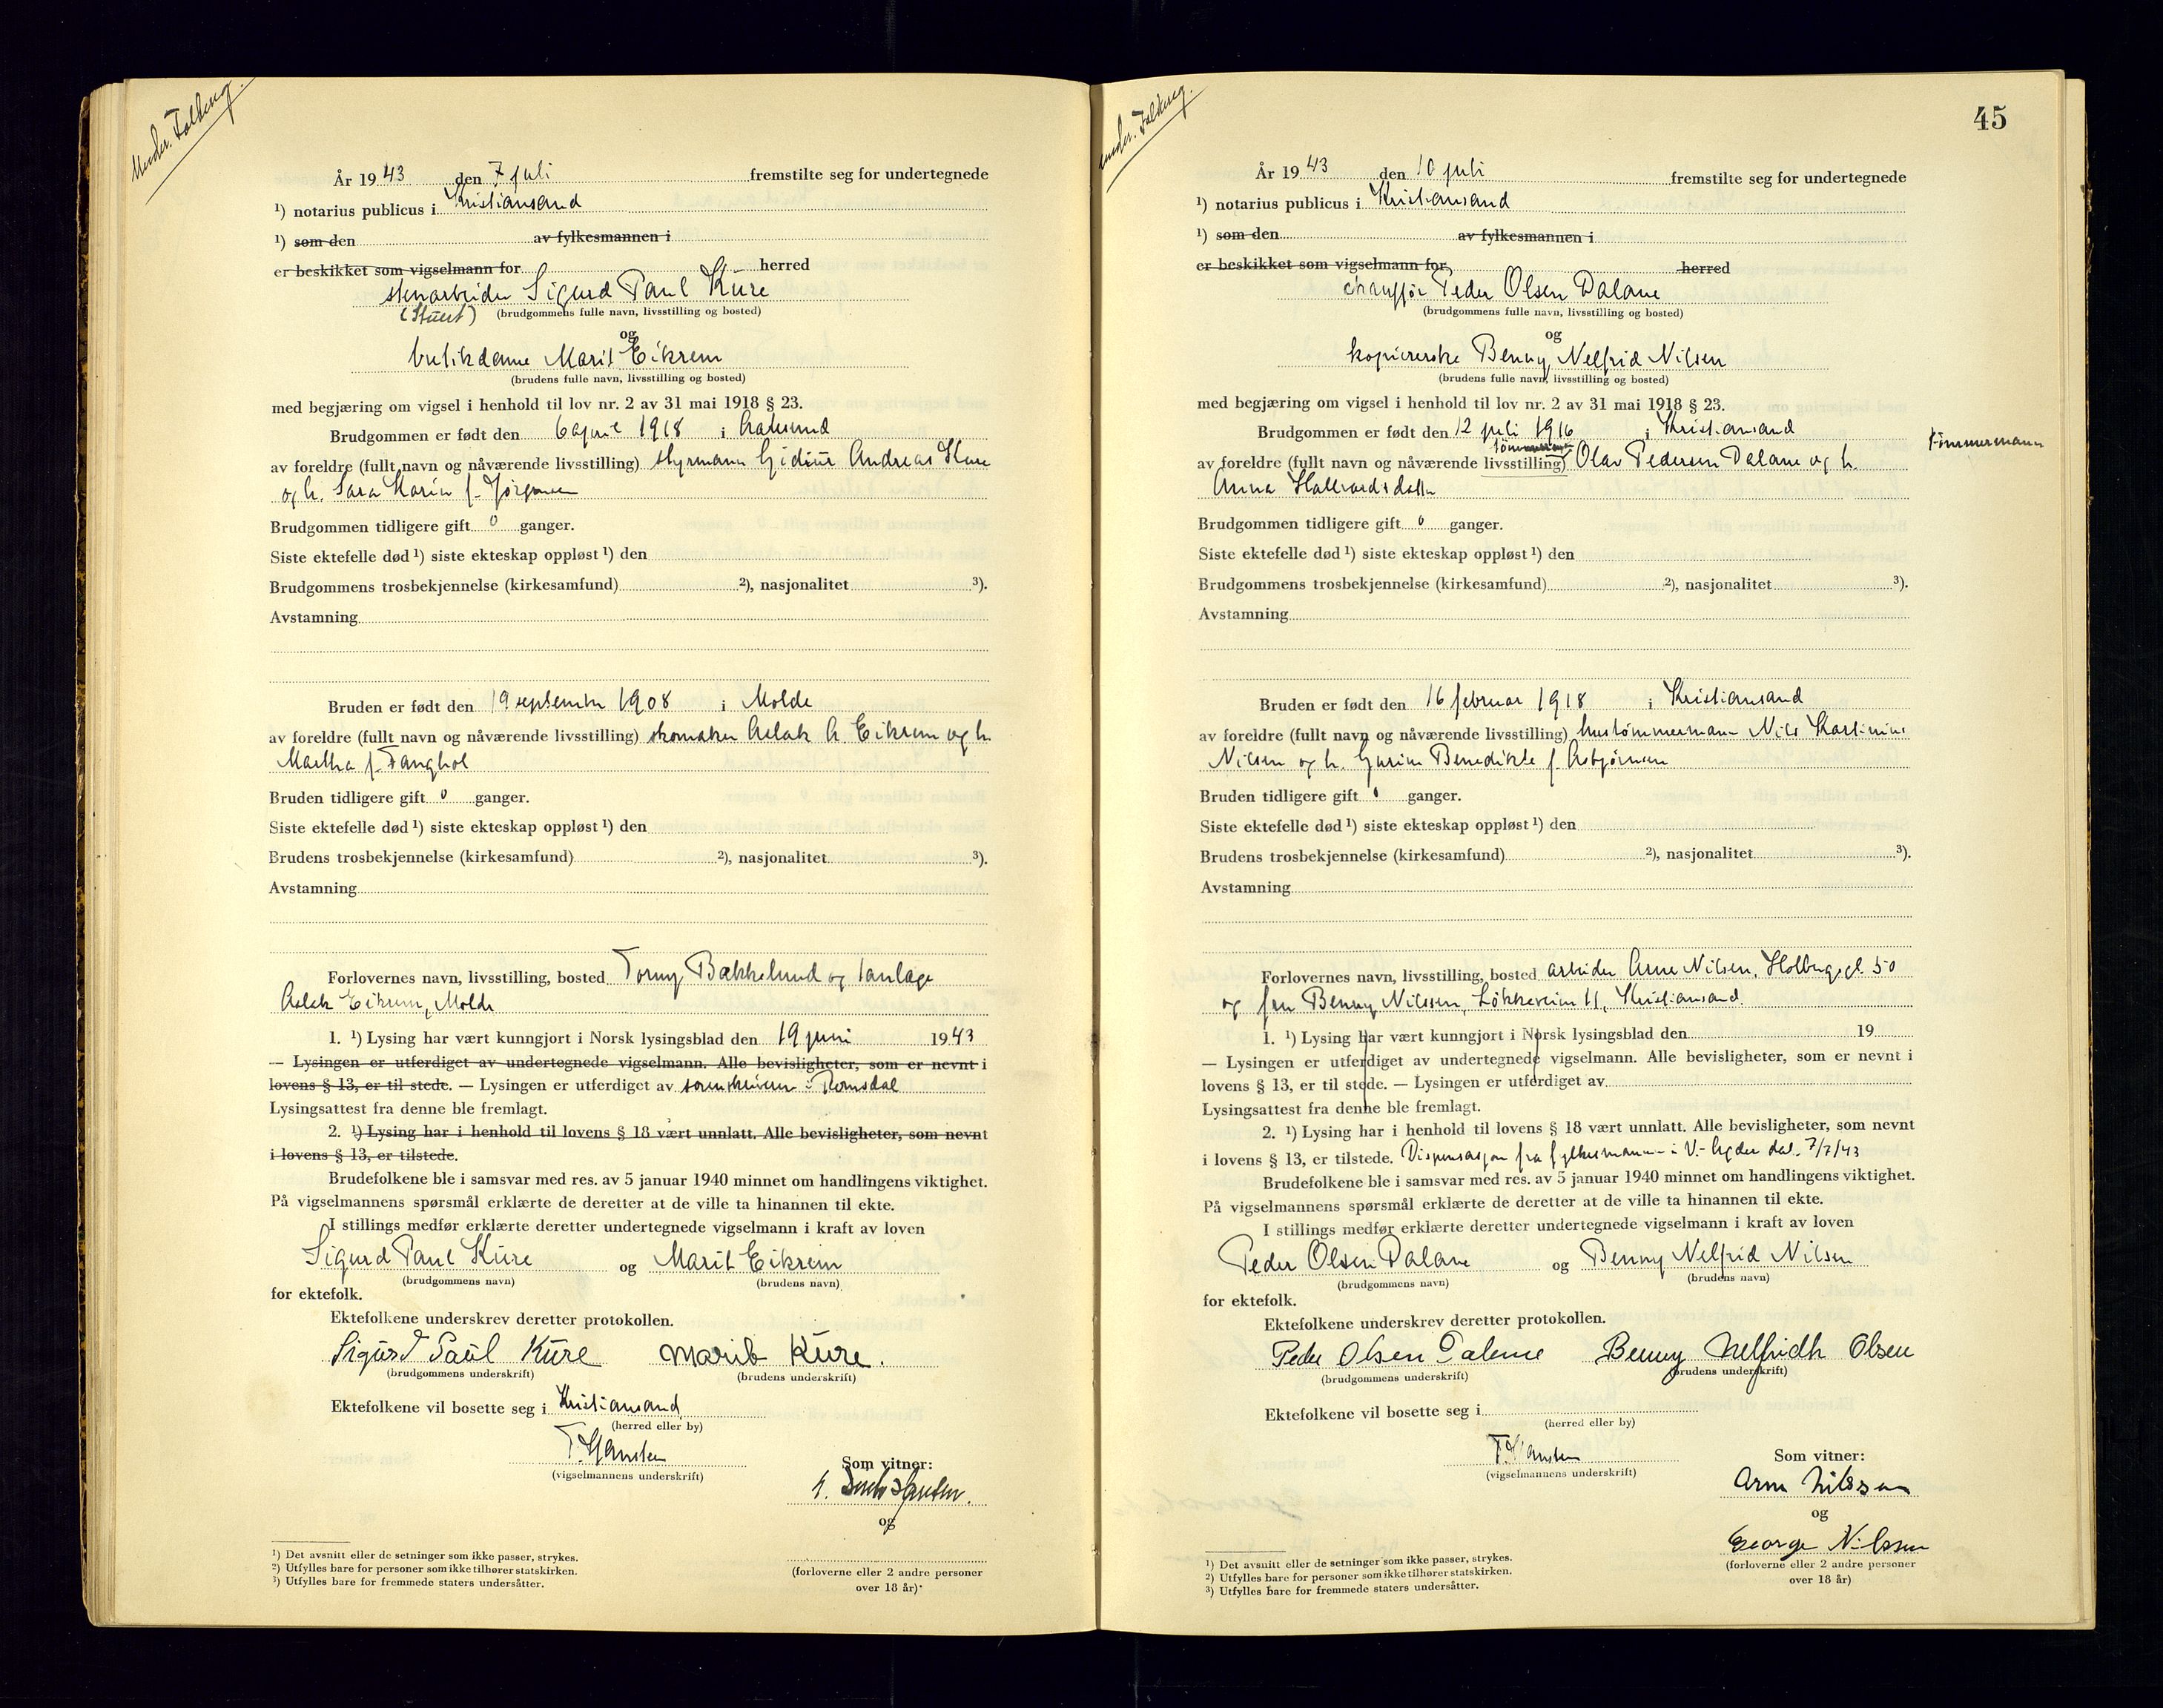 Under. Falkeng.
År 1943 den 7 juli fremstilte seg for undertegnede
¹) notarius publicus i Kristiansand
¹) som den av fylkesmannen i
er beskikket som vigselmann for herred
stenarbeider Sigurd Paul Küre
(Stuert) (brudgommens fulle navn, livsstilling og bosted)
og
butikdame Marit Eikrem
(brudens fulle navn, livsstilling og bosted)
med begjæring om vigsel i henhold til lov nr. 2 av 31 mai 1918 § 23.
Brudgommen er født den 6 april 1918 i Aalesund
av foreldre (fullt navn og nåværende livsstilling) styrmann Andreas Küre
og h. Sara Karin f. Jørgensen
Brudgommen tidligere gift 0 ganger.
Siste ektefelle død ¹) siste ekteskap oppløst ¹) den
Brudgommens trosbekjennelse (kirkesamfund) ²), nasjonalitet ³).
Avstamning
Bruden er født den 19 september 1908 i Molde
av foreldre (fullt navn og nåværende livsstilling) skomaker Aslak A. Eikrem og h.
Martha f. Fanghol
Bruden tidligere gift 0 ganger.
Siste ektefelle død ¹) siste ekteskap oppløst ¹) den
Brudens trosbekjennelse (kirkesamfund) ²), nasjonalitet ³).
Avstamning
Forlovernes navn, livsstilling, bosted Torny Bakkelund og tanlæge
Aslak Eikrem, Molde
1. ¹) Lysing har vært kunngjort i Norsk lysingsblad den 19 juni 1943
— Lysingen er utferdiget av undertegnede vigselmann. Alle bevisligheter, som er nevnt i
lovens § 13, er til stede. — Lysingen er utferdiget av sorenskriveren i Romsdal
Lysingsattest fra denne ble fremlagt.
2. ¹) Lysing har i henhold til lovens § 18 vært unnlatt. Alle bevisligheter, som nevnt
i lovens § 13, er tilstede.
Brudefolkene ble i samsvar med res. av 5 januar 1940 minnet om handlingens viktighet.
På vigselmannens spørsmål erklærte de deretter at de ville ta hinannen til ekte.
I stillings medfør erklærte deretter undertegnede vigselmann i kraft av loven
Sigurd Paul Küre og Marit Eikrem
(brudgommens navn) (brudens navn)
for ektefolk.
Ektefolkene underskrev deretter protokollen.
Sigurd Paul Küre Marit Küre.
(brudgommens underskrift) (brudens underskrift)
Ektefolkene vil bosette seg i Kristiansand
(herred eller by)
T. Hansten
(vigselmannens underskrift)
Som vitner:
og
(forloverne eller 2 andre personer
over 18 år)
¹) Det avsnitt eller de setninger som ikke passer, strykes.
²) Utfylles bare for personer som ikke tilhører statskirken.
³) Utfylles bare for fremmede staters undersåtter.
under. Falkeng.
45
År 1943 den 10 juli fremstilte seg for undertegnede
¹) notarius publicus i Kristiansand
¹) som den av fylkesmannen i
er beskikket som vigselmann for herred
chauffør Peder Olsen Dalane
(brudgommens fulle navn, livsstilling og bosted)
og
kopiererske Benny Nelfrid Nilsen
(brudens fulle navn, livsstilling og bosted)
med begjæring om vigsel i henhold til lov nr. 2 av 31 mai 1918 § 23.
Brudgommen er født den 12 juli 1916 i Kristiansand
tømmermann
av foreldre (fullt navn og nåværende livsstilling) Olav Pedersen Dalane og h.
Anna Hallvardsdatter
Brudgommen tidligere gift 0 ganger.
Siste ektefelle død ¹) siste ekteskap oppløst ¹) den
Brudgommens trosbekjennelse (kirkesamfund) ²), nasjonalitet ³).
Avstamning
Bruden er født den 16 februar 1918 i Kristiansand
av foreldre (fullt navn og nåværende livsstilling) hustømmermann Nils Karlinius
Nilsen og h. Gurine Benedikte f. Asbjørnsen
Bruden tidligere gift 0 ganger.
Siste ektefelle død ¹) siste ekteskap oppløst ¹) den
Brudens trosbekjennelse (kirkesamfund) ²), nasjonalitet ³).
Avstamning
Forlovernes navn, livsstilling, bosted arbeider Arne Nilsen, Holbergsgt. 50
og fru Benny Nilssen, Løkkeveien 11, Kristiansand.
1. ¹) Lysing har vært kunngjort i Norsk lysingsblad den 19
— Lysingen er utferdiget av undertegnede vigselmann. Alle bevisligheter, som er nevnt i
lovens § 13, er til stede. — Lysingen er utferdiget av
Lysingsattest fra denne ble fremlagt.
2. ¹) Lysing har i henhold til lovens § 18 vært unnlatt. Alle bevisligheter, som nevnt
i lovens § 13, er tilstede. Dispensasjon fra fylkesmannen i V.-Agder dat. 7/7/43
Brudefolkene ble i samsvar med res. av 5 januar 1940 minnet om handlingens viktighet.
På vigselmannens spørsmål erklærte de deretter at de ville ta hinannen til ekte.
I stillings medfør erklærte deretter undertegnede vigselmann i kraft av loven
Peder Olsen Dalane og Benny Nelfrid Nilsen
(brudgommens navn) (brudens navn)
for ektefolk.
Ektefolkene underskrev deretter protokollen.
Peder Olsen Dalane Benny Nelfridh Olsen
(brudgommens underskrift) (brudens underskrift)
Ektefolkene vil bosette seg i
(herred eller by)
T. Hansten
(vigselmannens underskrift)
Som vitner:
Arne Nilssen
og
George Nilssen
(forloverne eller 2 andre personer
over 18 år)
¹) Det avsnitt eller de setninger som ikke passer, strykes.
²) Utfylles bare for personer som ikke tilhører statskirken.
³) Utfylles bare for fremmede staters undersåtter.